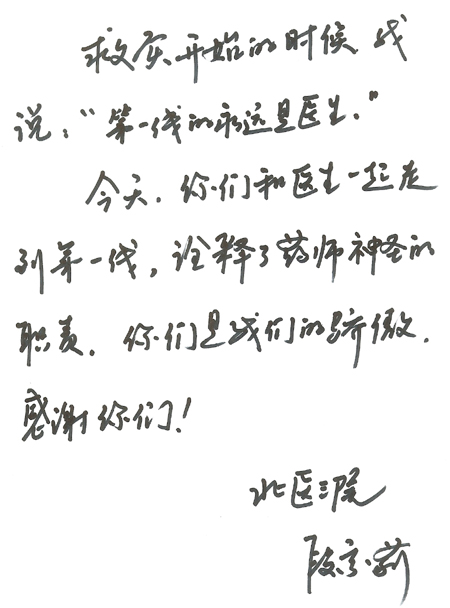 救灾开始的时候 我
说：“第一线的永远是医生。”
今天，你们和医生一起走
到第一线，诠释了药师神圣的
职责。你们是我们的骄傲。
感谢你们！
北医三院
段京莉